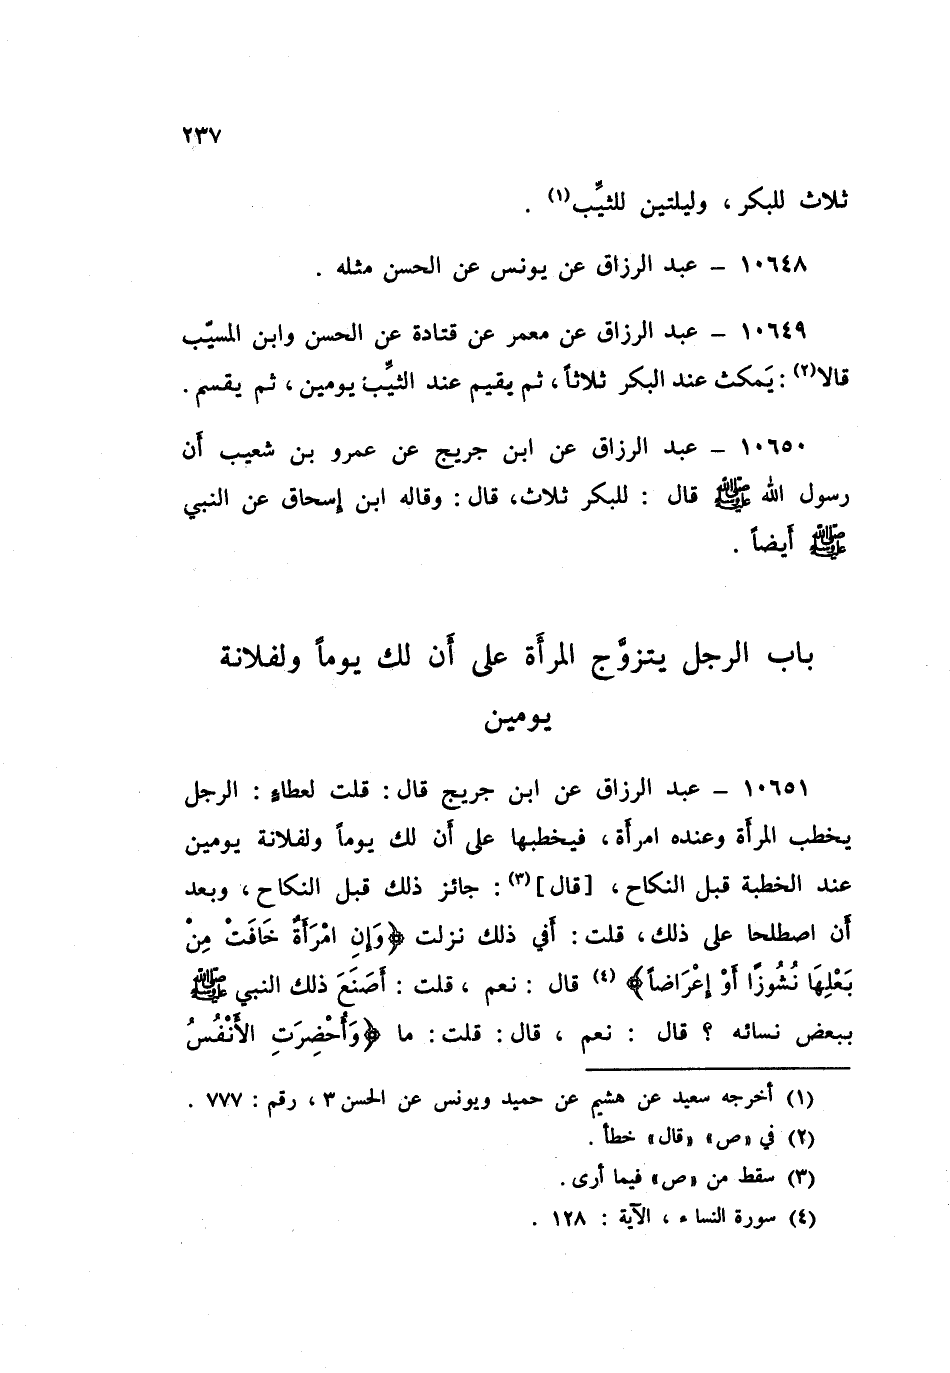 ٢٣٧
ثلاث للبكر ، وليلتين للثيِّب(١) .
١٠٦٤٨ – عبد الرزاق عن يونس عن الحسن مثله .
١٠٦٤٩ – عبد الرزاق عن معمر عن قتادة عن الحسن وابن المسيّب
قالا(٢) : يَمكث عند البكر ثلاثاً ، ثم يقيم عند الثيِّب يومين ، ثم يقسم .
١٠٦٥٠ – عبد الرزاق عن ابن جريج عن عمرو بن شعيب أَن
رسول الله ﷺ قال : للبكر ثلاث، قال : وقاله ابن إسحاق عن النبي
ﷺ أَيضاً .
باب الرجل يتزوَّج المرأَة على أَن لك يوماً ولفلانة
يومين
١٠٦٥١ – عبد الرزاق عن ابن جريج قال : قلت لعطاءٍ : الرجل
يخطب المرأَة وعنده امرأَة ، فيخطبها على أَن لك يوماً ولفلانة يومين
عند الخطبة قبل النكاح ، [قال](٣) : جائز ذلك قبل النكاح ، وبعد
أَن اصطلحا على ذلك ، قلت : أَفي ذلك نزلت ﴿وَإِنِ امْرَأَةٌ خَافَتْ مِنْ
بَعْلِهَا نُشُوزًا أَوْ إِعْرَاضاً﴾ (٤) قال : نعم ، قلت : أَصَنَعَ ذلك النبي ﷺ
ببعض نسائه ؟ قال : نعم ، قال : قلت : ما ﴿وَأُحْضِرَتِ الأَنْفُسُ
(١) أخرجه سعيد عن هشيم عن حميد ويونس عن الحسن ٣ ، رقم : ٧٧٧ .
(٢) في «ص» «قال» خطأ .
(٣) سقط من «ص» فيما أرى .
(٤) سورة النساء ، الآية : ١٢٨ .